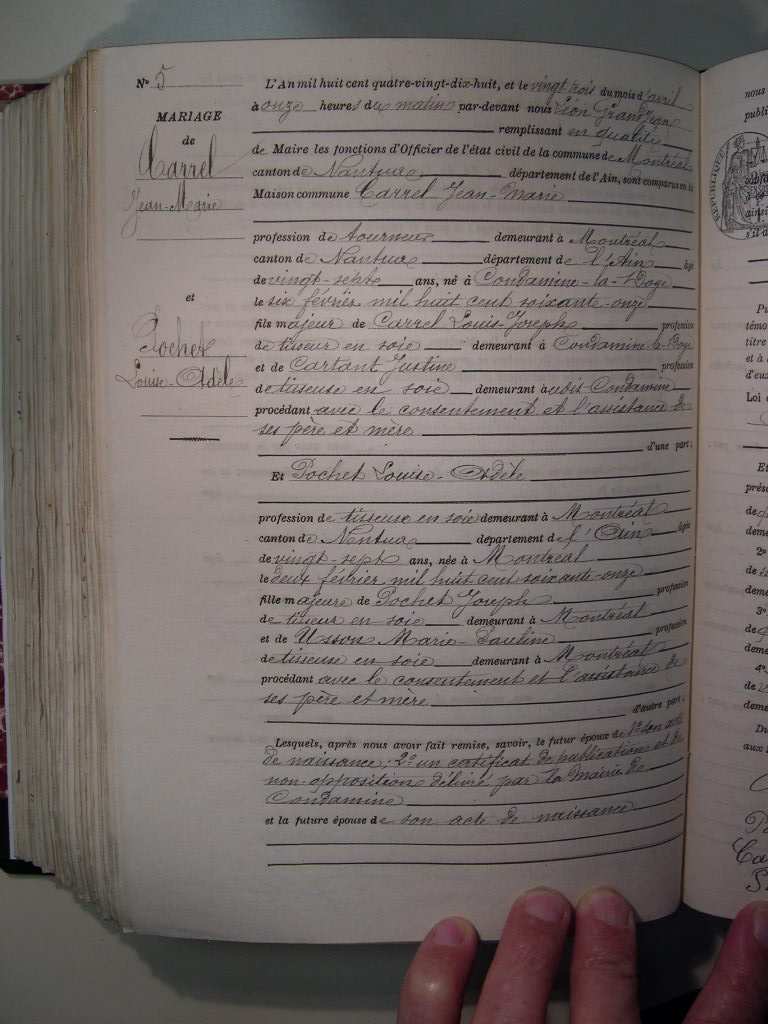 N° 5
MARIAGE
de
Carrel
Jean-Marie
et
Pochet
Louise-Adèle
L'An mil huit cent quatre-vingt-dix-huit, et le vingt trois du mois d'avril
à onze heures du matin par-devant nous Léon Grandjean
remplissant en qualité
de Maire les fonctions d'Officier de l'état civil de la commune de Montréal
canton de Nantua département de l'Ain, sont comparus en la
Maison commune Carrel Jean-Marie
profession de tourneur demeurant à Montréal
canton de Nantua département de l'Ain âgé
de vingt-sept ans, né à Condamine-la-Doye
le six février mil huit cent soixante-onze
fils majeur de Carrel Louis-Joseph profession
de tisseur en soie demeurant à Condamine-la-Doye
et de Cartant Justine profession
de tisseuse en soie demeurant à udit Condamine
procédant avec le consentement et l'assistance de
ses père et mère
d'une part;
Et Pochet Louise-Adèle
profession de tisseuse en soie demeurant à Montréal
canton de Nantua département de l'Ain âgée
de vingt-sept ans, née à Montréal
le deux février mil huit cent soixante-onze
fille majeure de Pochet Joseph profession
de tisseur en soie demeurant à Montréal
et de Usson Marie-Pauline profession
de tisseuse en soie demeurant à Montréal
procédant avec le consentement et l'assistance de
ses père et mère
d'autre part;
Lesquels, après nous avoir fait remise, savoir, le futur époux de 1° son acte
de naissance; 2° un certificat de publication et de
non-opposition délivré par la Mairie de
Condamine
et la future épouse de son acte de naissance
nous
publi
RÉPUBLIQUE
témo
titre
et à
d'eux
Loi d
Et
prése
de
deme
2°
de
deme
3°
de
deme
4°
de
deme
Du
aux